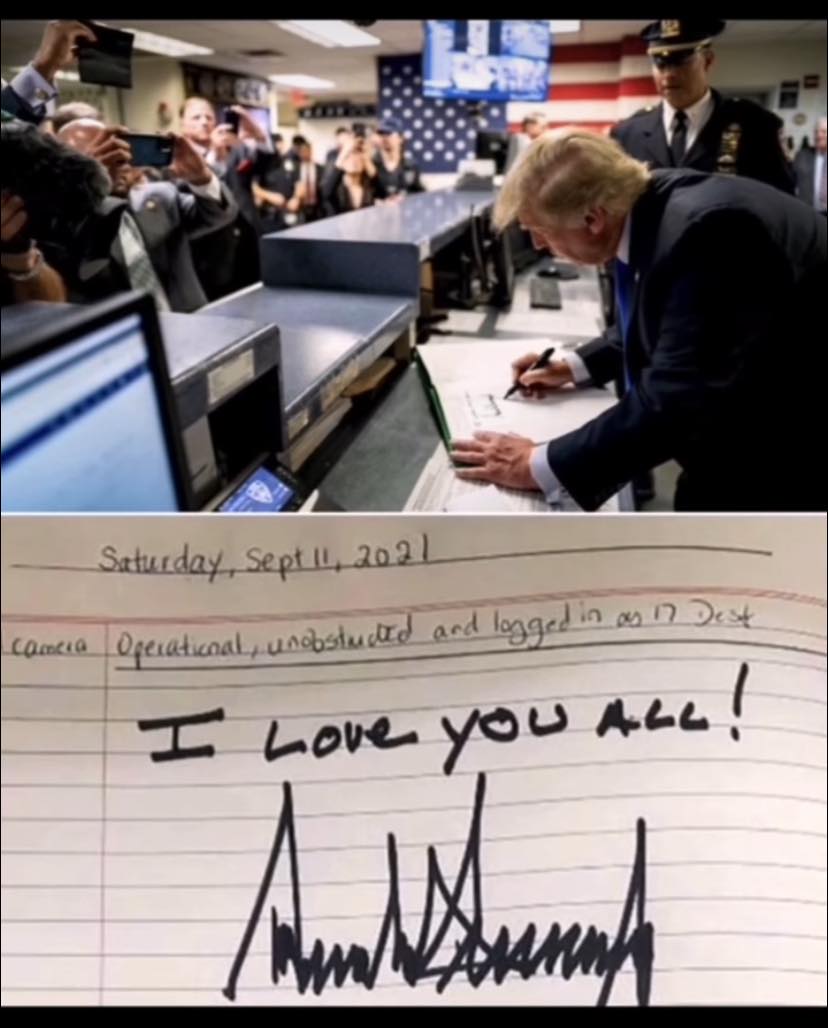 Saturday, Sept 11, 2021
camera Operational, unobstructed and logged in as 17 Desk
I Love YOU ALL!